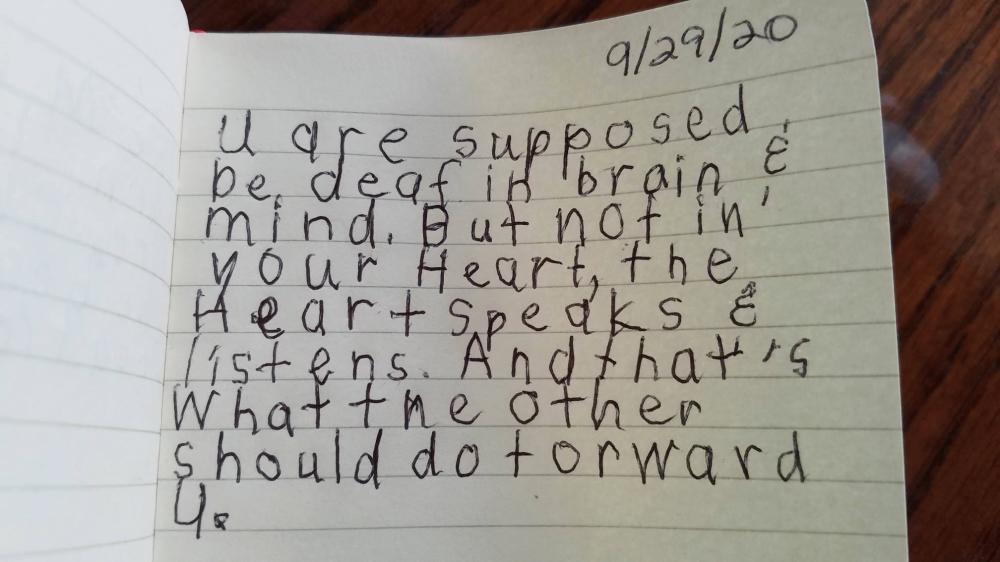 9/29/20
U are supposed
be deaf in brain &
mind. But not in
your Heart, the
Heart speaks &
listens. And that's
What the other
should do torward
U.